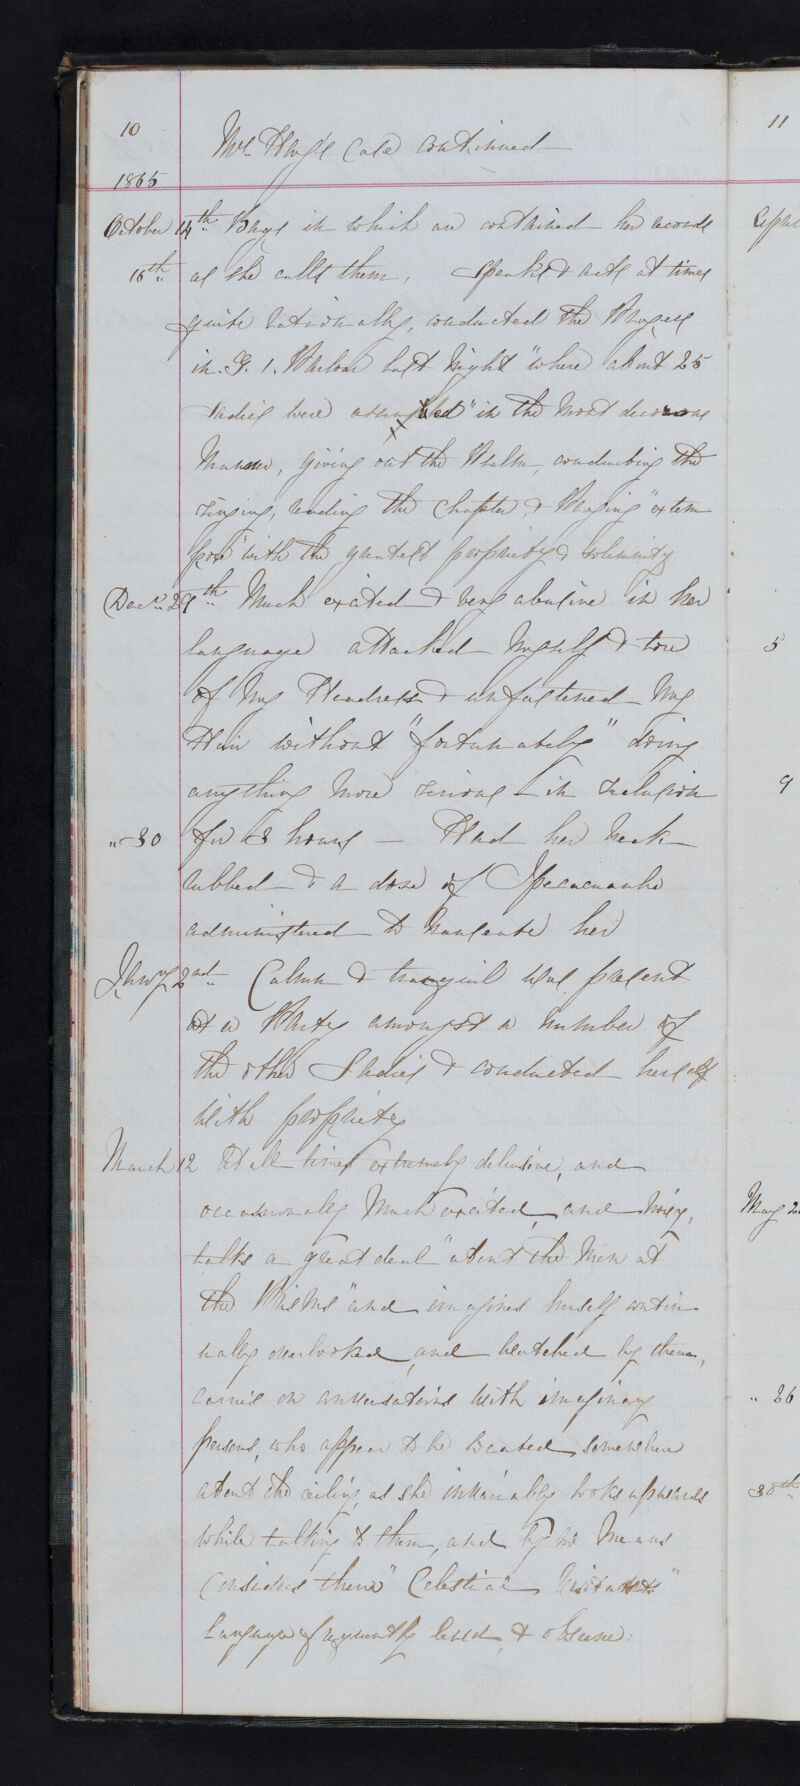 10
Mrs Hay's Case continued
1865
October 14th Bags in which are contained her records
16th as she calls them. Speaks & acts at times
quite rationally, conducted the Prayers
in G. 1. Parlour last night "where about 25
Ladies were assembled" in the most decorous
Manner, giving out the Psalm, conducting the
singing, reading the Chapter & Praying "extem
pore" with the greatest propriety & solemnity
Decr. 29th Much excited & very abusive in her
language attacked Myself & tore
of My Headress & unfastened My
Hair without "fortunately" doing
anything More serious – in seclusion
" 30 for 3 hours – Had her Neck
rubbed & a dose of Ipecacuanha
administered to nauseate her
Janry 2nd Calm & tranquil was present
at a Party amongst a number of
the other Ladies & conducted herself
with propriety
March 12 At all times extremely delusive, and
occasionally Much excited, and Noisy,
talks a great deal "about the Men at
the " and imagines herself contin-
ually overlooked, and watched by them,
carries on conversations with imaginary
persons, who appear to be located somewhere
about the ceiling, as she invariably looks upwards
while talking to them, and by no Means
Considers them "Celestial Visitants"
Language frequently lewd, & obscene.
11
5
9
May 2
" 26
30th